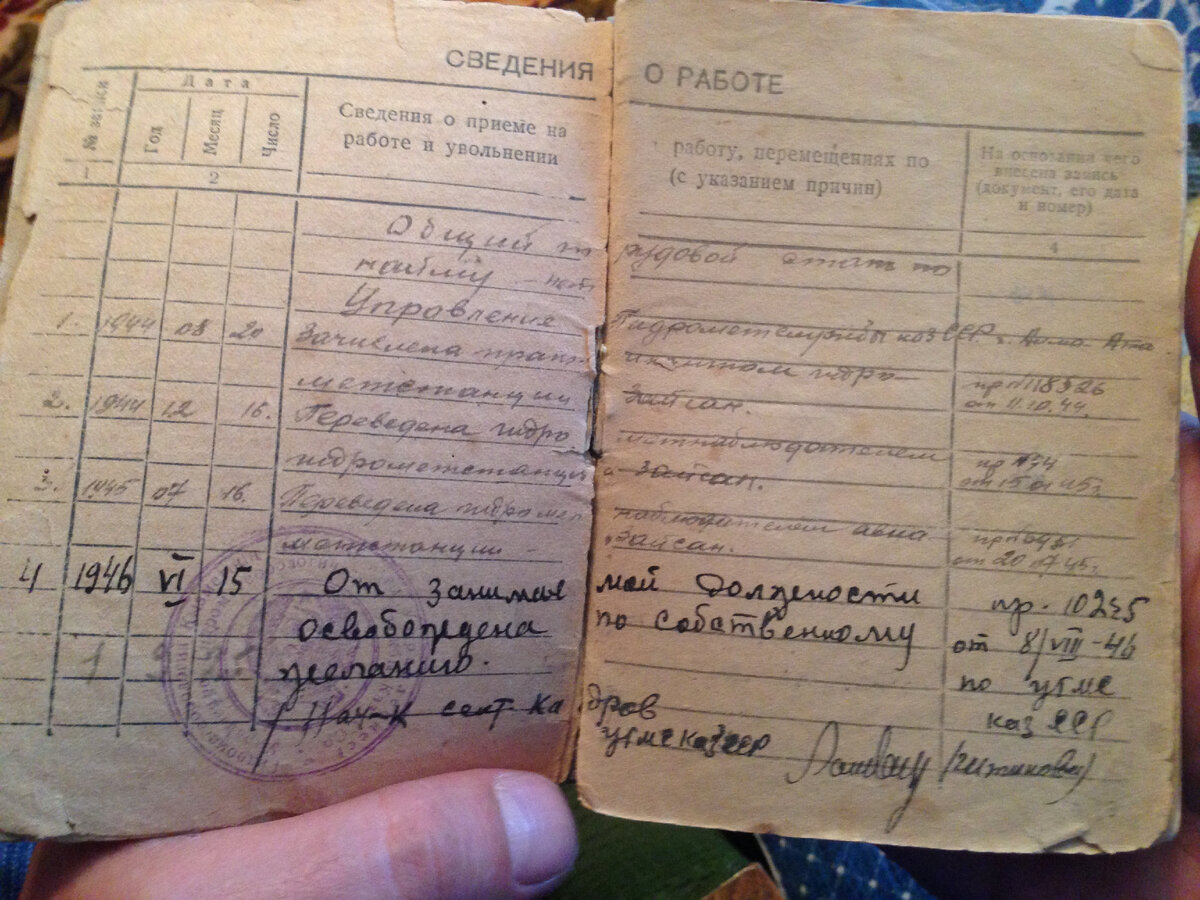 СВЕДЕНИЯ О РАБОТЕ
№ записи
Дата
Год Месяц Число
Сведения о приеме на работу, перемещениях по
работе и увольнении (с указанием причин)
На основании чего
внесена запись
(документ, его дата
и номер)
1 2 4
Общий трудовой стаж по
найму нет
Управление Гидрометслужбы каз ССР г. Алма-Ата
1. 1944 08 20 Зачислена практикантом гидро-
метстанции Зайсан. от 11.10.44.
2. 1944 12 16. Переведена гидрометнаблюдателем
гидрометстанции Зайсан.
3. 1945 07 16. Переведена гидромет наблюдателем авиа
метстанции - Зайсан.
4 1946 VI 15 От занимаемой должности пр. 10235
освобождена по собственному от 8/VIII-46
желанию. по угмс
каз ССР
Нач-к сект. Кадров
угмс каз ССР